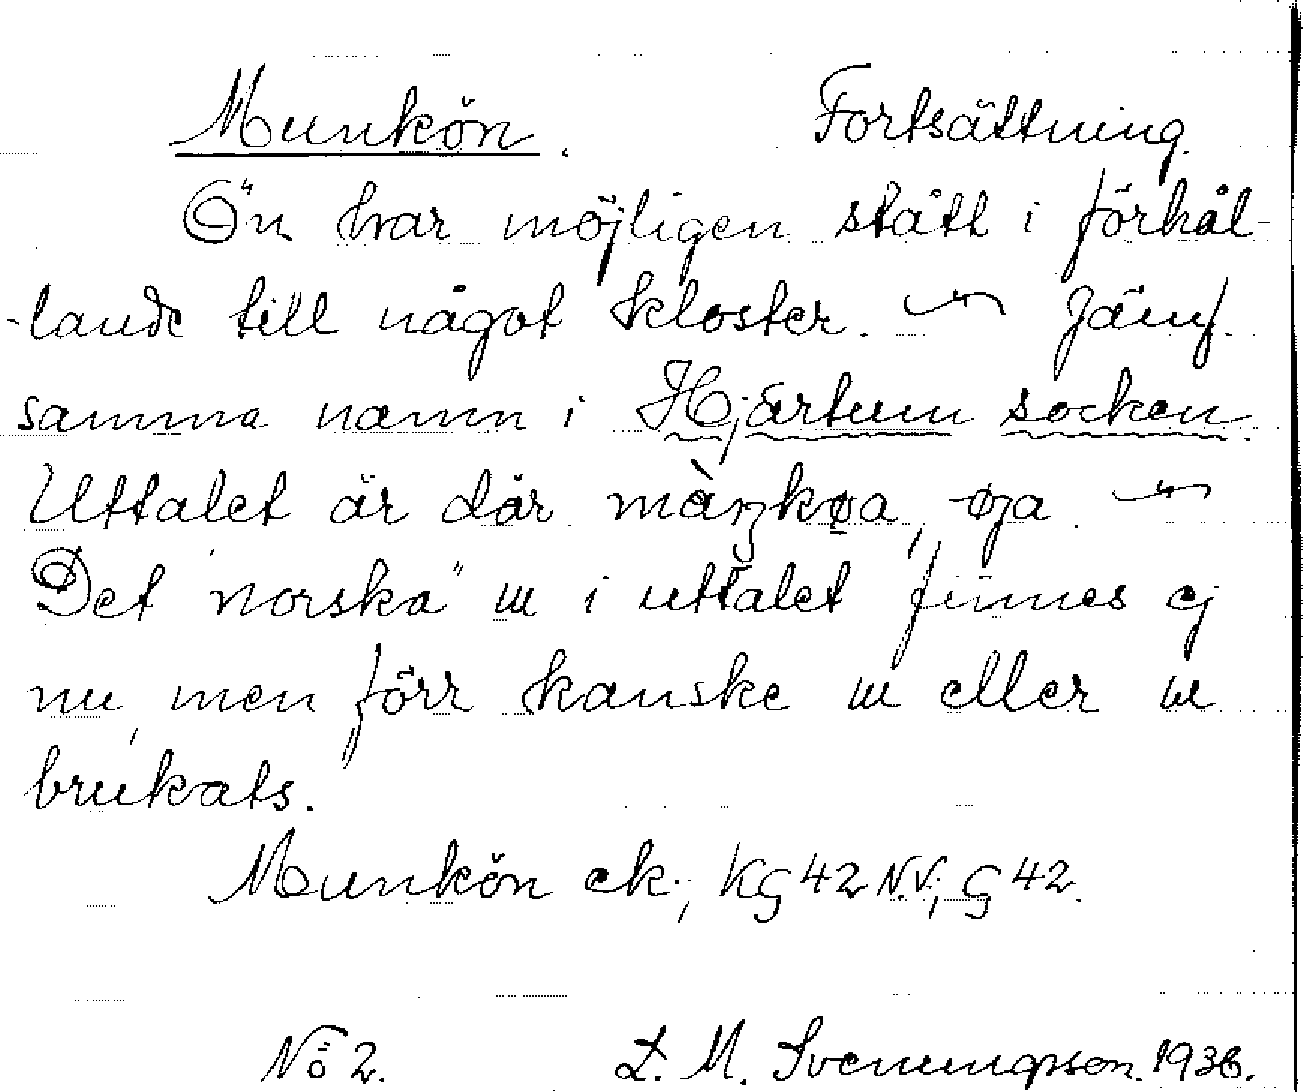 Munkön. Fortsättning.
Ön har möjligen stått i förhål-
-lande till något kloster. — Jämf.
samma namn i Hjärtum socken.
Uttalet är där màŋkøa, øa —
Det "norska" ɯ i uttalet finnes ej
nu, men förr kanske ɯ eller ɯ
brukats.
Munkön ek.; KG 42 N.V.; G 42.
No 2. L. M. Svenungsson. 1936.